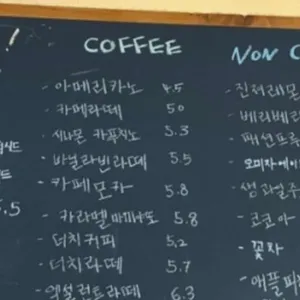 COFFEE
- 아메리카노 4.5
- 카페라떼 5.0
- 시나몬 카푸치노 5.3
- 바닐라빈라떼 5.5
- 카페모카 5.8
- 카라멜마끼아또 5.8
- 더치커피 5.2
- 더치라떼 5.7
- 엑설런트라떼 6.3
NON C
- 진저레몬
- 베리베리
- 패션프루
- 오미자에이
- 생과일주
- 코코아
- 꽃차
- 애플피
!
5.5